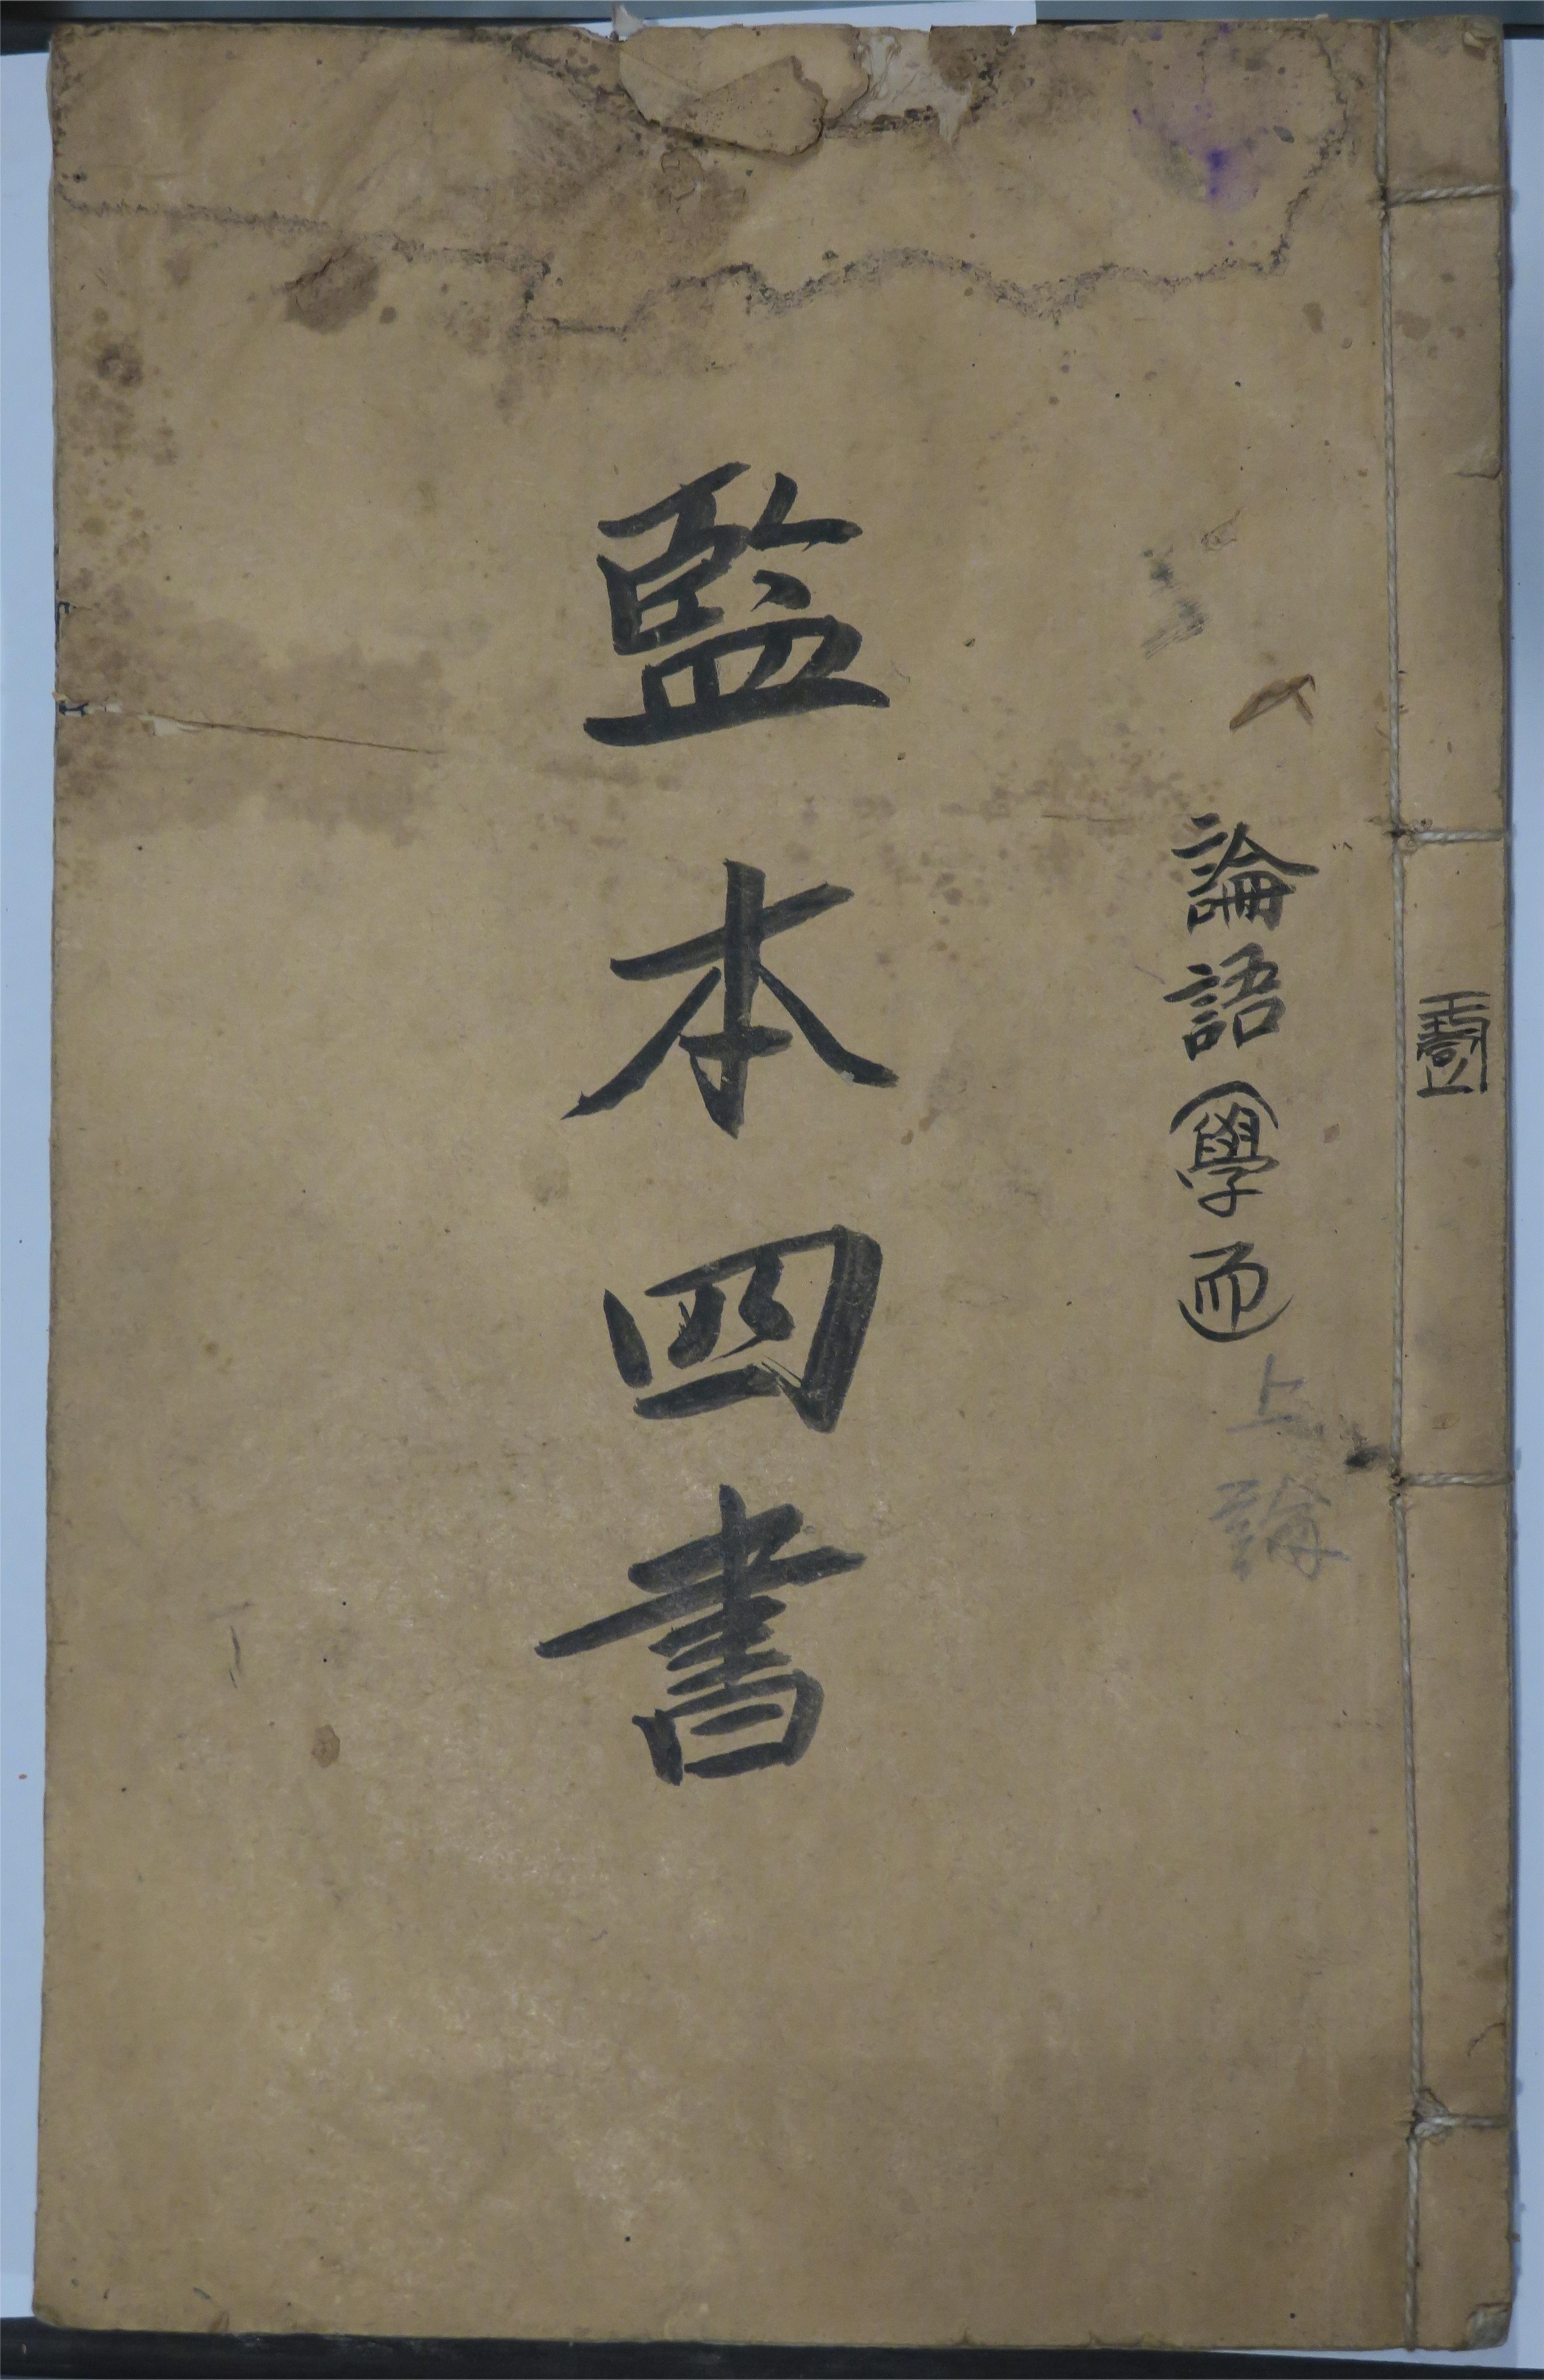 論語(學而)
上論
監本四書